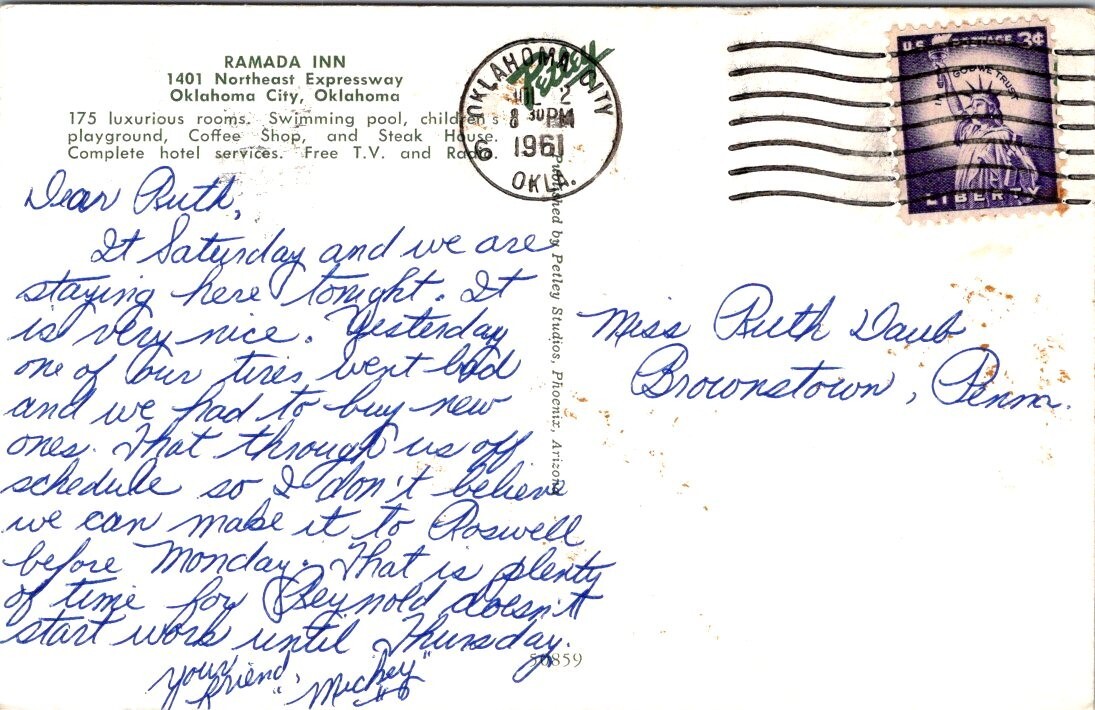 RAMADA INN
1401 Northeast Expressway
Oklahoma City, Oklahoma
175 luxurious rooms. Swimming pool, children's
playground, Coffee Shop, and Steak House.
Complete hotel services. Free T.V. and Radio.
Petley
OKLAHOMA CITY
JUL 2
8 30 PM
1961
OKLA.
6
U.S. POSTAGE 3¢
IN GOD WE TRUST
LIBERTY
Dear Ruth,
It Saturday and we are
staying here tonight. It
is very nice. Yesterday
one of our tires went bad
and we had to buy new
ones. That through us off
schedule so I don't believe
we can make it to Roswell
before Monday. That is plenty
of time for Reynold doesn't
start work until Thursday.
Your
friend,
"Mickey"
Published by Petley Studios, Phoenix, Arizona
Miss Ruth Daub
Brownstown, Penna.
50859